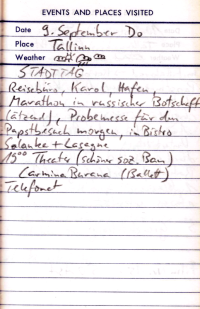 EVENTS AND PLACES VISITED
Date 9. September Do
Place Tallinn
Weather
STADTTAG
Reisebüro, Karol, Hafen,
Marathon in russischer Botschaft
(ätzend), Probemesse für den
Papstbesuch morgen, in Bistro
Solanka + Lasagne
19⁰⁰ Theater (schöner soz. Bau)
Carmina Burana (Ballett)
Telefonat